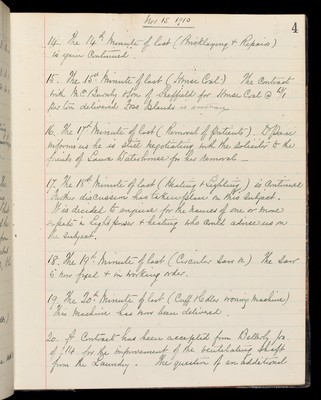 Nov 15 1910
4
14. The 14th Minute of last (Bricklaying & Repairs)
is again Continued.
15. The 15th Minute of last (House Coal) The Contract
with Mr Burnby & Son of Sheffield for House Coal @
per ton delivered Fosse Islands is
16. The 17th Minute of last (Removal of Patients). Dr Pierce
informs us he is still negotiating with the Solicitor to the
friends of Laura Waterhouse for her removal —
17. The 18th Minute of last (Heating & Lighting) is Continued
Further discussion has taken place on this subject.
It is decided to enquire for the names of one or more
experts in Light power & heating who could advise us on
the subject.
18. The 19th Minute of last (Circular Saw). The Saw
is now fixed & in working order.
19. The 20th Minute of last (Cuff & Collar ironing machine)
This machine has now been delivered.
20. A Contract has been accepted from Bellerby
of £14 for the improvement of the ventilating shaft
from the Laundry. The question of an additional